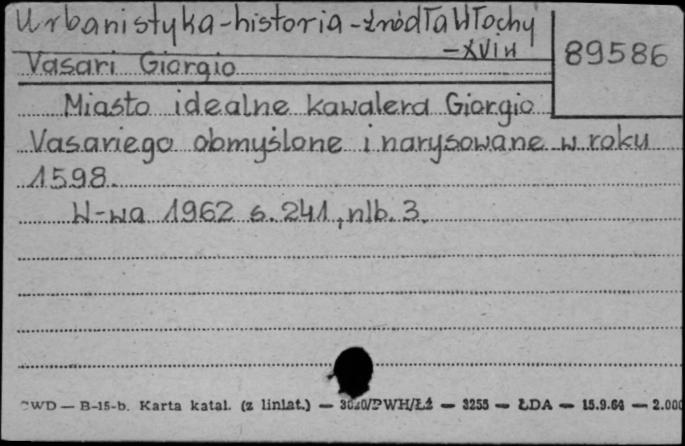 Urbanistyka-historia-źródła Włochy
-XVI w
89586
Vasari Giorgio
Miasto idealne kawalera Giorgio
Vasariego obmyślone i narysowane w roku
1598.
W-wa 1962 s. 241, nlb. 3.
CWD — B-15-b. Karta katal. (z liniat.) — /PWH/Łż — 3255 — ŁDA — 15.9.64 — 2.000